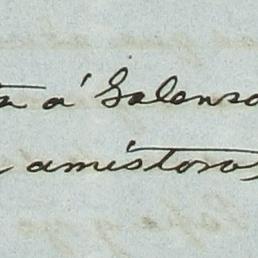 ta á Galensa
amistosa